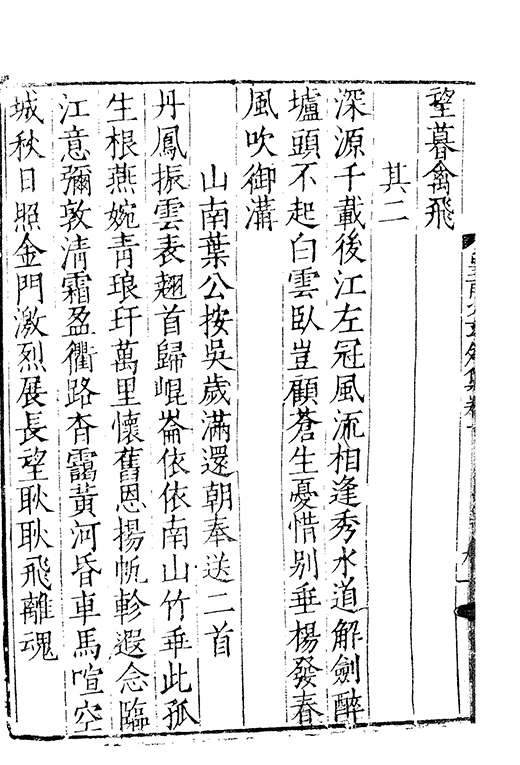 望暮禽飛
其二
深源千載後江左冠風流相逢秀水道解劍醉
壚頭不起白雲臥豈顧蒼生憂惜别垂楊發春
風吹御溝
山南葉公按吳歲滿還朝奉送二首
丹鳳振雲表翹首歸崐崙依依南山竹垂此孤
生根燕婉青琅玕萬里懷舊恩揚帆軫遐念臨
江意彌敦清霜盈衢路杳靄黃河昏車馬喧空
城秋日照金門激烈展長望耿耿飛離魂